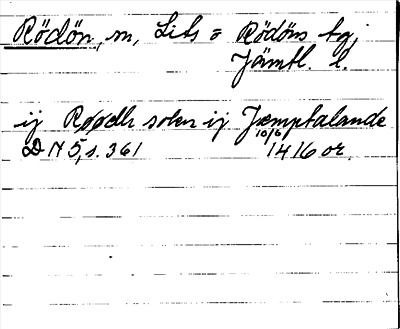 Rödön, m, Lits o Rödöns tgj,
Jämtl. l.
ij Røødh solen ij Jæmptalande
10/6
DN 5, s. 361 1416 or.